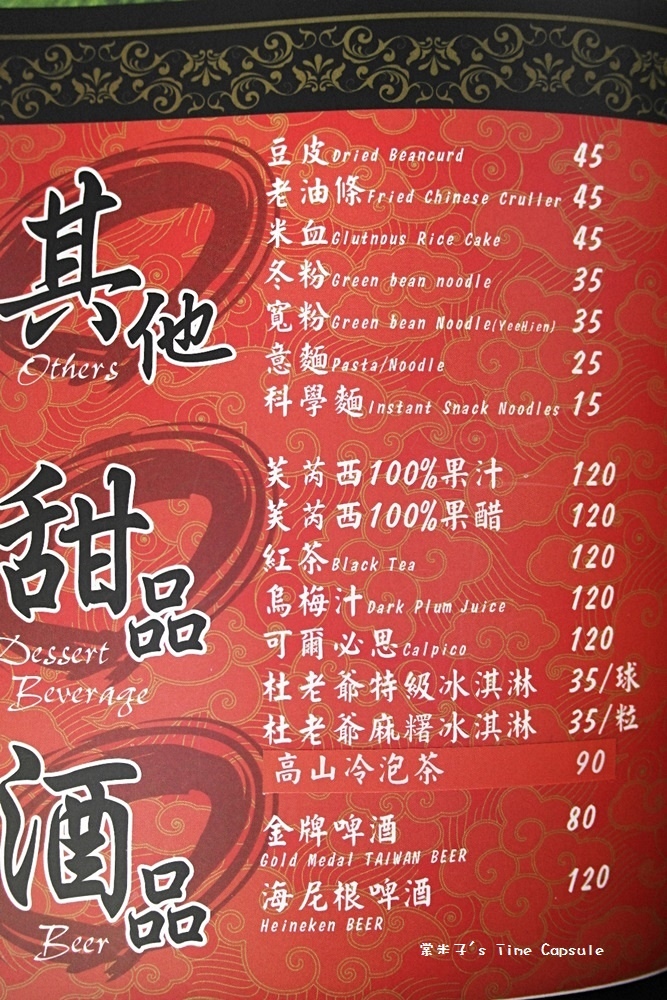 其他
Others
豆皮Dried Beancurd 45
老油條Fried Chinese Cruller 45
米血Glutnous Rice Cake 45
冬粉Green bean noodle 35
寬粉Green bean Noodle(YeeHien) 35
意麵Pasta/Noodle 25
科學麵Instant Snack Noodles 15
甜品
Dessert
Beverage
芙芮西100%果汁 120
芙芮西100%果醋 120
紅茶Black Tea 120
烏梅汁Dark Plum Juice 120
可爾必思Calpico 120
杜老爺特級冰淇淋 35/球
杜老爺麻糬冰淇淋 35/粒
高山冷泡茶 90
酒品
Beer
金牌啤酒 80
Gold Medal TAIWAN BEER
海尼根啤酒 120
Heineken BEER
棠米子's Time Capsule